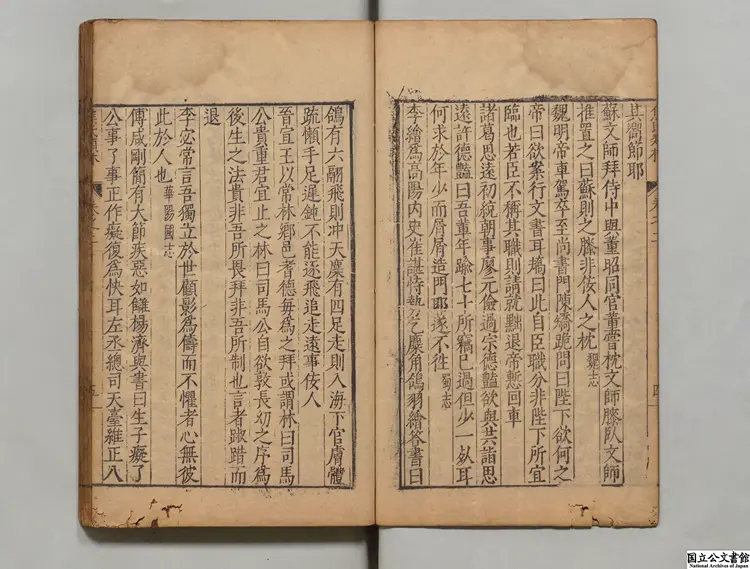 其嚮節耶
蘇文師拜侍中與董昭同官董嘗枕文師膝臥文師
推置之曰蘇則之膝非佞人之枕 魏志
魏明帝車駕卒至尚書門陳矯跪問曰陛下欲何之
帝曰欲案行文書耳矯曰此自臣職分非陛下所宜
臨也若臣不稱其職則請就黜退帝慙回車
諸葛思遠初統朝事廖元儉過宗德豔欲與共詣思
遠許德豔曰吾輩年踰七十所竊已過但少一死耳
何求於年少而屑屑造門耶遂不往 蜀志
李繪爲高陽內史崔諶恃勢乞麋角鴿羽繪答書曰
鴿有六翮飛則冲天麋有四足走則入海下官膚體
疏懶手足遲鈍不能逐飛追走遠事佞人
晉宣王以常林鄉邑耆德每爲之拜或謂林曰司馬
公貴重君宜止之林曰司馬公自欲敦長幼之序爲
後生之法貴非吾所畏拜非吾所制也言者踧踖而
退
李宓常言吾獨立於世顧影爲儔而不懼者心無彼
此於人也 華陽國志
傅咸剛簡有大節疾惡如讎楊濟與書曰生子癡了
公事了事正作癡復爲快耳左丞總司天臺維正八
卷之二
四
五
国立公文書館
National Archives of Japan